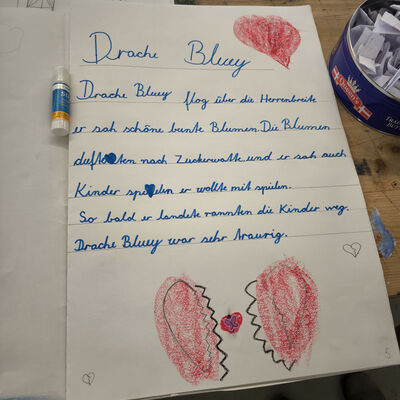 Drache Bluey
Drache Bluey flog über die Herrenbreite
er sah schöne bunte Blumen. Die Blumen
dufteten nach Zuckerwatte, und er sah auch
Kinder spielen er wollte mit spielen.
So bald er landete rannten die Kinder weg.
Drache Bluey war sehr traurig.
5